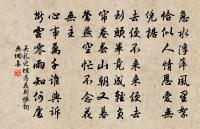 急水浮萍風裏絮
恰似人情恩愛無
憑據
去便不來來便去
到頭畢竟成輕負
簾卷春山朝又暮
鶯燕空忙不念花
無主
心事萬千誰與訴
斷雲零雨知何處